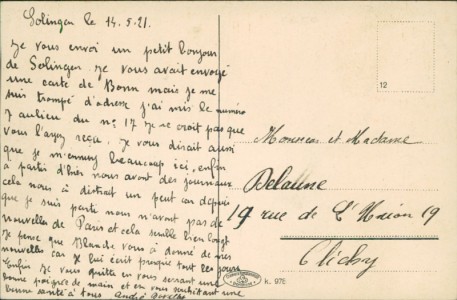 Solingen le 14.5.21.
Je vous envoi un petit bonjour
de Solingen. Je vous avait envoyé
une carte de Bonn mais je me
suis trompé d'adresse j'ai mis le numéro
7 aulieu du n° 17 Je ne croit pas que
vous l'ayez reçu, Je vous dirait aussi
que je m'ennuy beaucoup ici, enfin
a partir d'hier nous avont des journaux
cela nous à distrait un peut car depuis
que je suis parti nous n'avont pas de
nouvelles de Paris et cela semble bien long.
Je pense que Blanche vous à donné de mes
nouvelles car je lui écrit presque tout les jours
Enfin Je vous quitte en vous serrant une
bonne poignée de main et en vous souhaitant une
bonne santé à tous. André
12
Monsieur et Madame
Delaune
17 rue de L'Union 19
Clichy
k. 97E